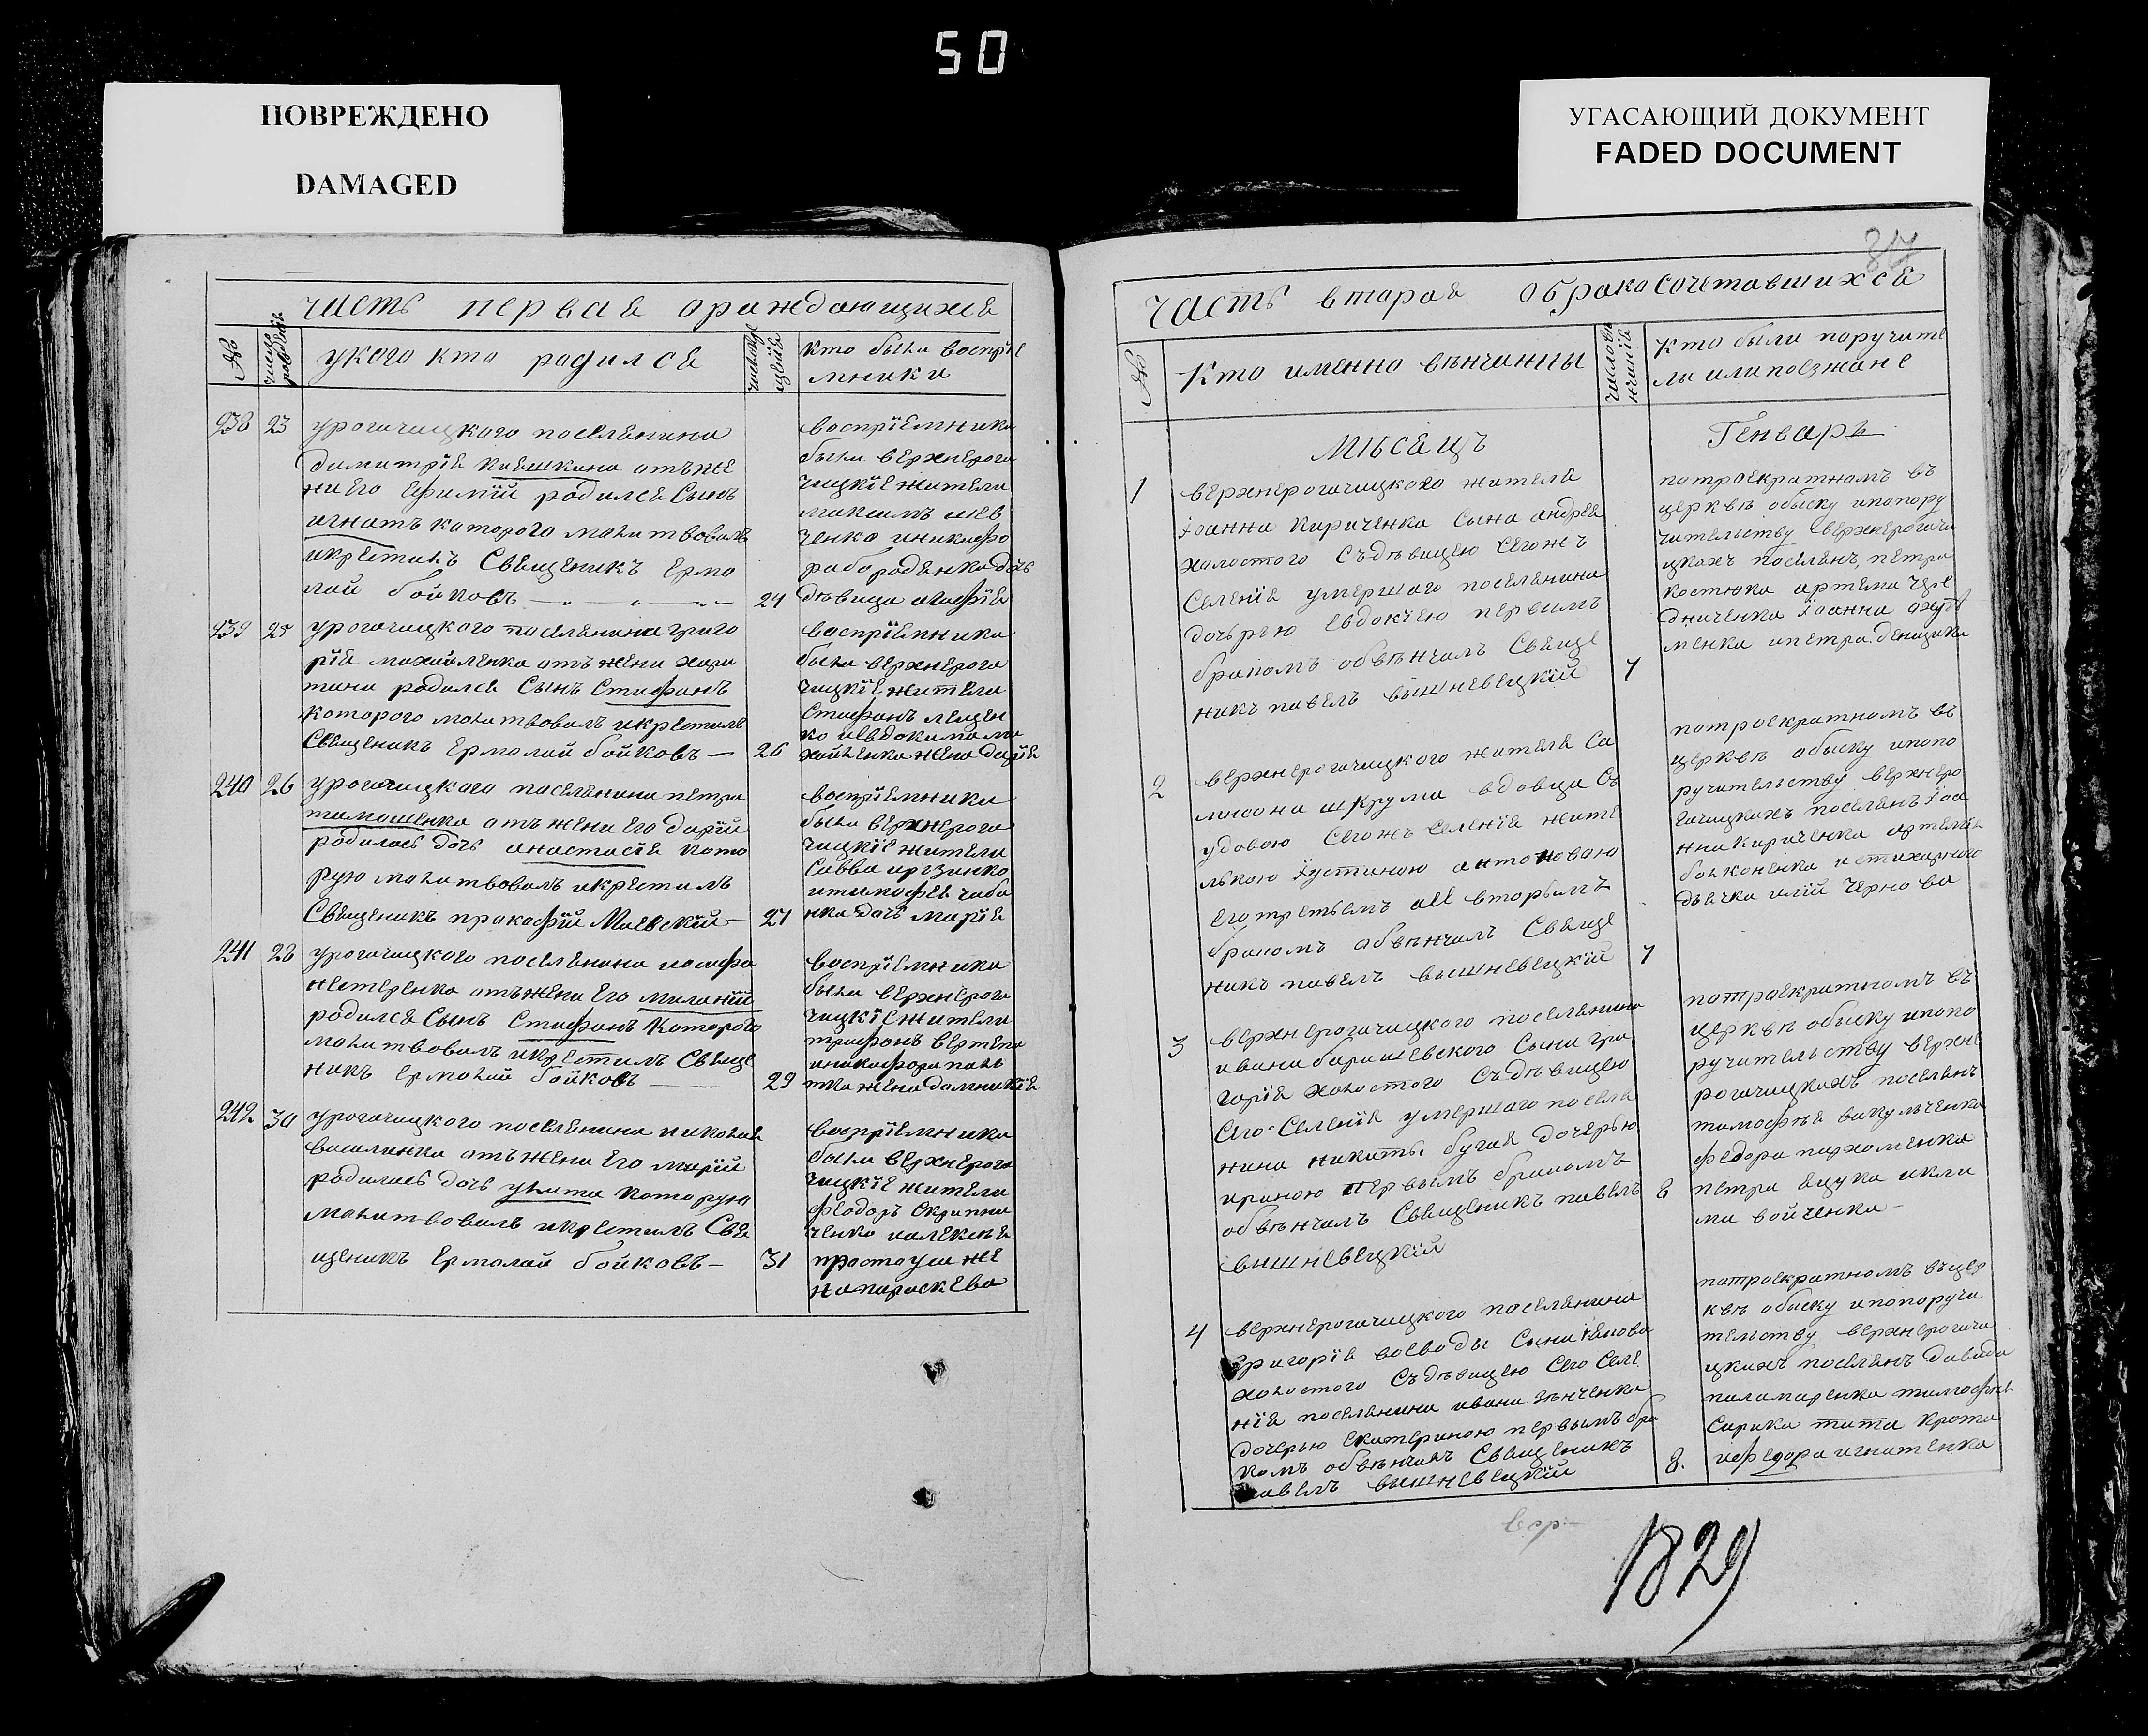 50
ПОВРЕЖДЕНО
DAMAGED
УГАСАЮЩИЙ ДОКУМЕНТ
FADED DOCUMENT
часть первая ораждающихся
№
число рождения
укого кто родился
число крещенія
кто были воспріе
мники
238 23 урогачицкого поселянина
димитрія отъже
ни его ефиміи родился Сынъ
игнатъ которого молитвовалъ
икрестилъ Свещеникъ Ермо
лай бойковъ 24
воспріемники
были верхнерога
чицкіе жители
максимъ
ченко иникифо
дочь
девица агафія
239 25 урогачицкого поселянина григо
рія михайленка отъ жени хари
тини родился Сынъ Стефанъ
которого молитвовалъ икрестилъ
Свещеникъ Ермолай бойковъ 26
воспріемники
были верхнерога
чицкіе жители
Стефанъ лещен
ко иевдокима ми
хайленка жена дарія
240 26 урогачицкого поселянина петра
тимошенка отъ жени его даріи
родилась дочь анастасія кото
рую молитвовалъ икрестилъ
Свещеникъ пракофій Маевскій 27
воспріемники
были верхнерога
чицкіе жители
Савва
итимофея чаба
нка дочь марія
241 28 урогачицкого поселянина иосифа
нестеренка отъжени Его миланіи
родился Сынъ Стефанъ Которого
молитвовалъ икрестилъ Свеще
никъ Ермолай бойковъ 29
воспріемники
были верхнерога
чицкіе жители
трифонъ
иникифора
тка жена домникія
242 30 урогачицкого поселянина николая
василенка отъ жени Его маріи
родилась дочь улита которую
молитвовалъ икрестилъ Свя
щеникъ Ермолай бойковъ 31
воспріемники
были верхнерога
чицкіе жители
феодоръ Скрипни
ченко иалексея
простоуш же
на параскева
часть вторая обракосочетавшихся
№
Кто именно вѣнчанны
число вѣнчанія
Кто были поручите
ли или поезжане
Мѣсецъ
Генварь
1 верхнерогачицкого жителя
іоанна Кириченка Сына андрея
холостого Съдѣвицею Сегожъ
Селенія умершаго поселянина
дочьрею Евдокіею первымъ
бракомъ обвѣнчалъ Свяще
никъ павелъ вышневецкій 7
потроекратномъ въ
церквѣ обыску ипопору
чительству верхнерогачи
цкихъ поселянъ, петра
костюка артема чере
дниченка іоанна
менка ипетра денщика
2 верхнерогачицкого жителя Са
мисона шкрума вдовца Съ
удовою Сегожъ Селенія жите
лькою іустиною антоновою
Его третьемъ вторымъ
бракомъ обвѣнчалъ Свяще
никъ павелъ вышневецкій 7
потроекратномъ въ
церквѣ обыску ипопо
ручительству верхнеро
гачицкихъ поселянъ іоа
нна Кириченка артемія
истихарного
дьячка иліи чернова
3 верхнерогачицкого поселянина
ивана баришевского Сына гри
горія холостого Съдѣвицею
Сего Селенія умершаго поселя
нина никиты бугая дочерью
ириною первымъ бракомъ
обвѣнчалъ Свещеникъ павелъ 8
вышневецкій
потроекратномъ въ
церквѣ обыску ипопо
ручительству верхне
рогачицкихъ поселянъ
тимофѣя вакульченка
федора пархоменка
петра яцука икли
ма войченка
4 верхнерогачицкого поселянина
григорія воеводы Сына якова
холостого Съдѣвицею Сего Селе
нія поселянина ивана зѣнченка
дочерью екатериною первымъ бра
комъ обвѣнчалъ Свещеникъ
павелъ вышневецкій 8.
потроекратномъ въцер
квѣ обыску ипопоручи
тельству верхнерогачи
цкихъ поселянъ давида
паламаренка тимофѣя
Сирика тита крота
ифедора игнатенка
1829